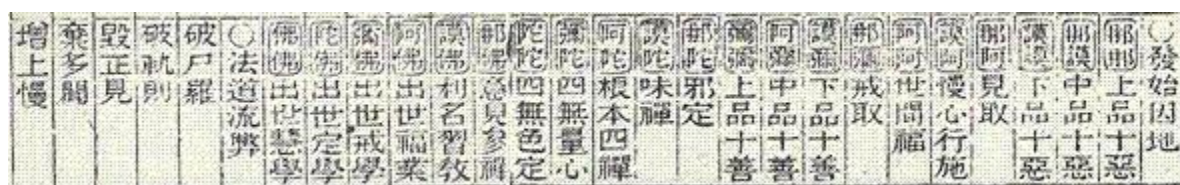 〇發始因地
那那上品十惡
那謨中品十惡
謨謨下品十惡
那阿見取
謨阿慢心行施
阿阿世間福
那彌戒取
謨彌下品十善
阿彌中品十善
彌彌上品十善
那陀邪定
謨陀味禪
阿陀根本四禪
彌陀四無量心
陀陀四無色定
那佛意見參禪
謨佛利名習教
阿佛出世福業
彌佛出世戒學
陀佛出世定學
佛佛出世慧學
〇法道流弊
破尸羅
破軌則
毀正見
棄多聞
增上慢